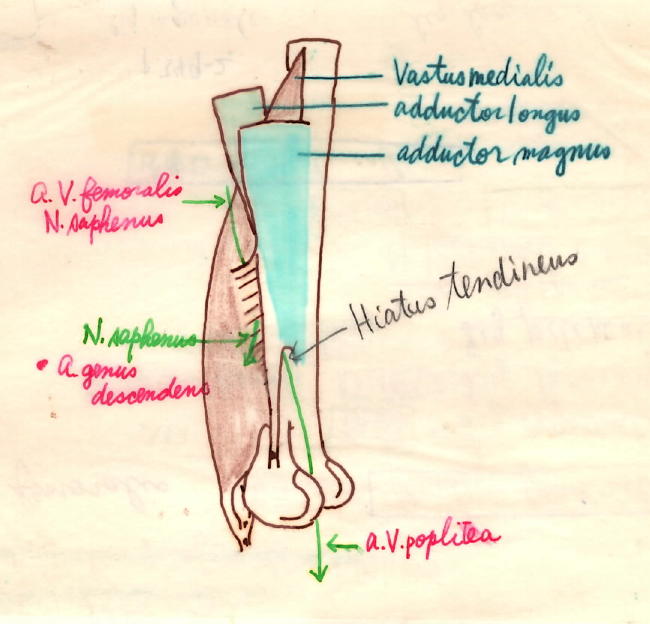 Vastus medialis
adductor longus
adductor magnus
a. V. femoralis
N. saphenus
Hiatus tendineus
N. saphenus
a. genus
descendens
a. V. poplitea